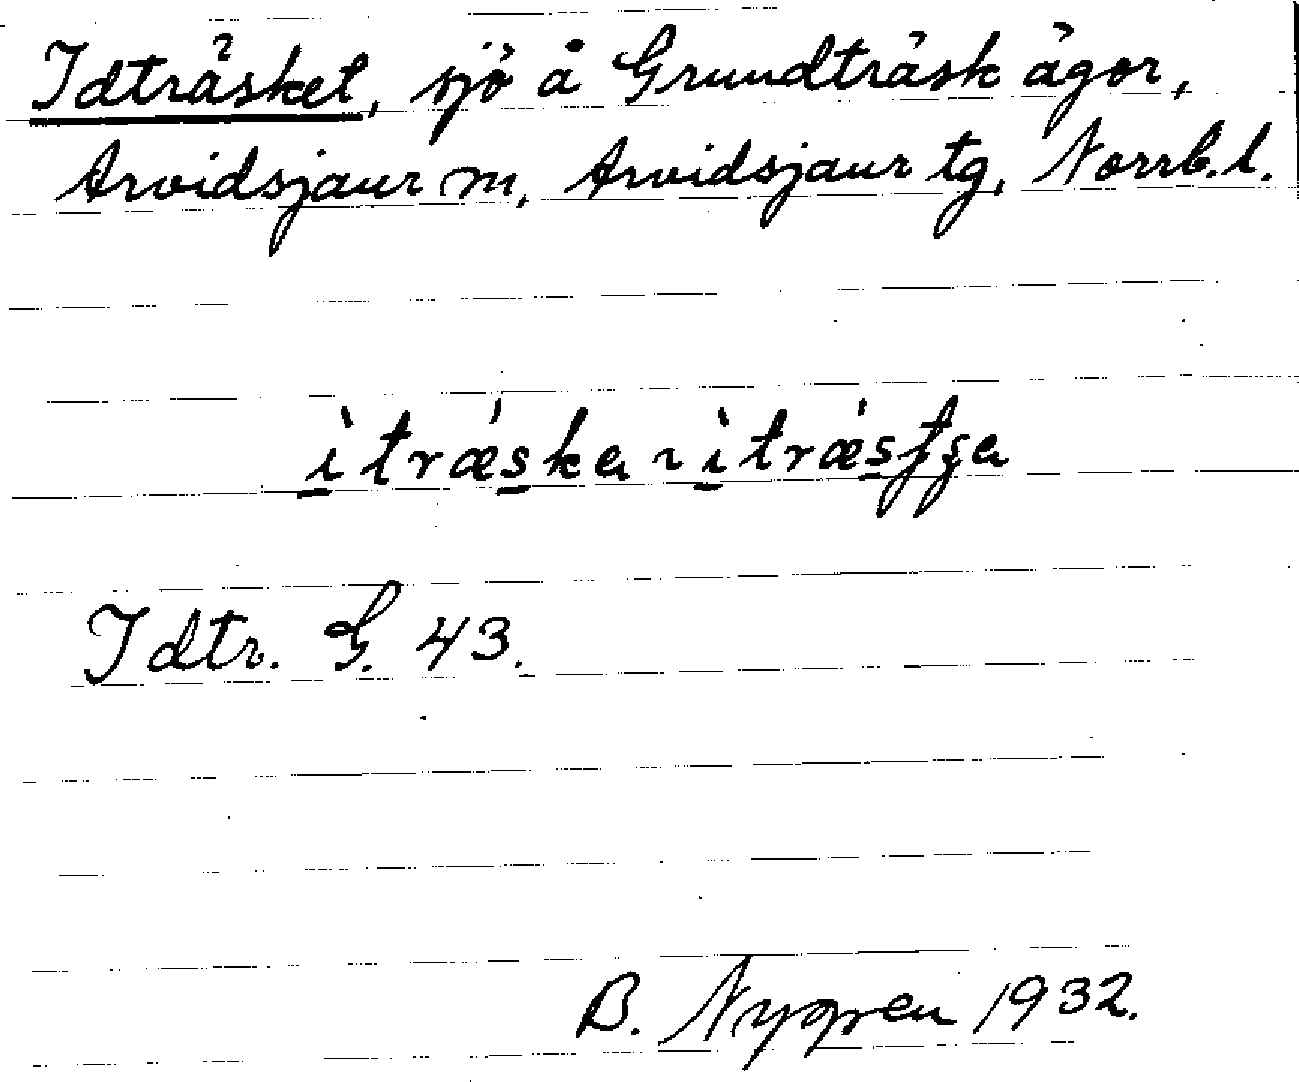 Idträsket, sjö å Grundträsk ägor,
Arvidsjaur sn, Arvidsjaur tg, Norrb. l.
Idtr. G. 43.
B. Nygren 1932.